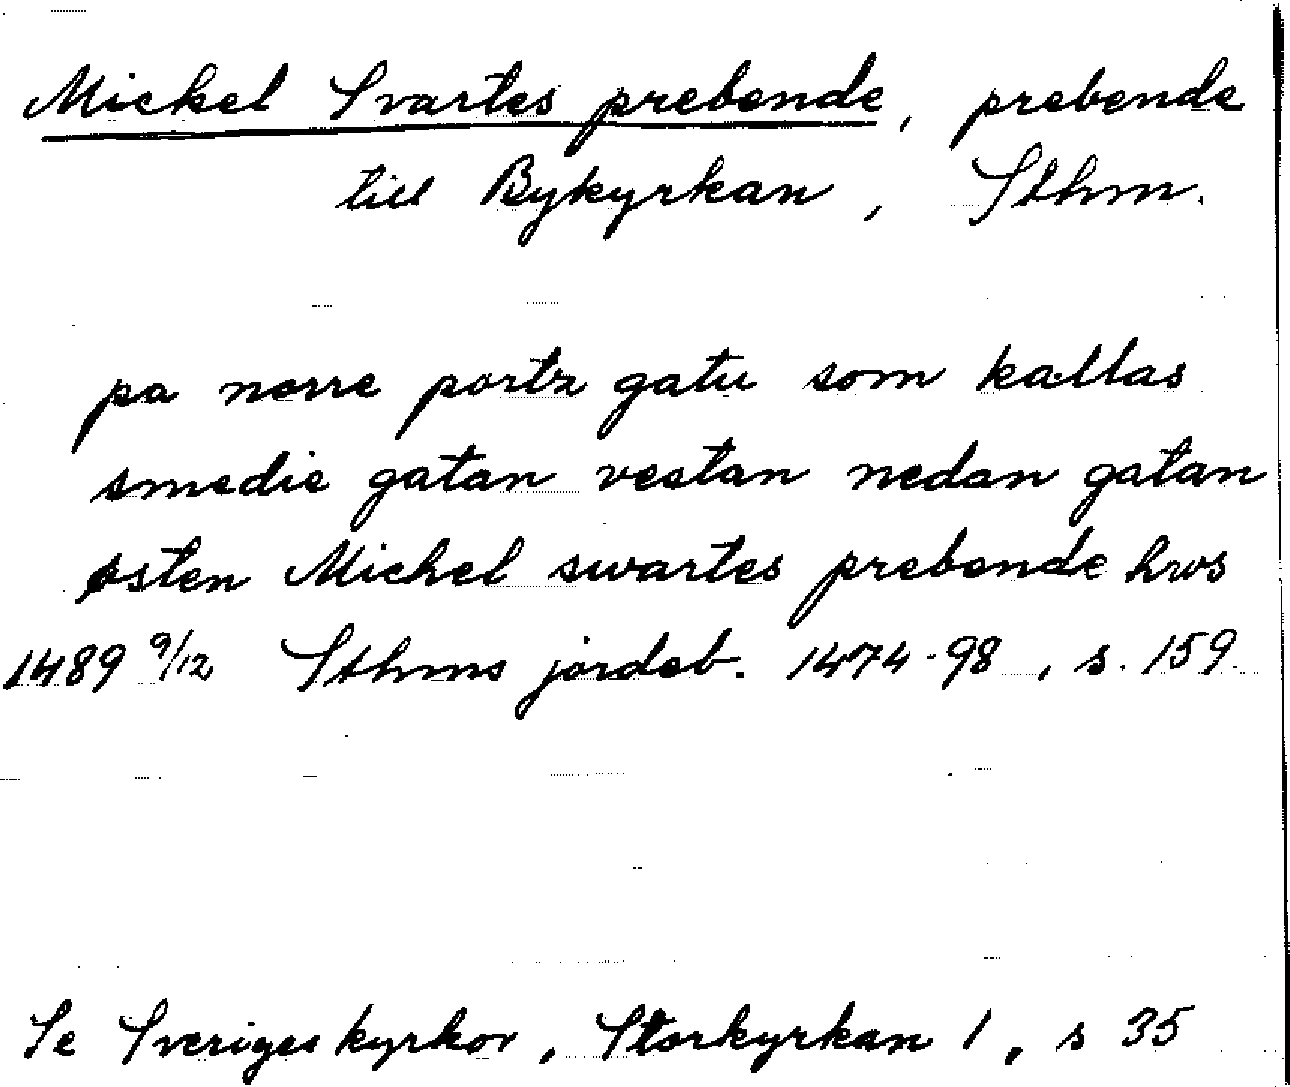 Mickel Svartes prebende, prebende
till Bykyrkan, Sthm.
pa norre portz gatu som kallas
smedie gatan vestan nedan gatan
østen Michel swartes prebende hws
1489 9/12 Sthms jordeb. 1474-98, s. 159.
Se Sveriges kyrkor, Storkyrkan 1, s 35